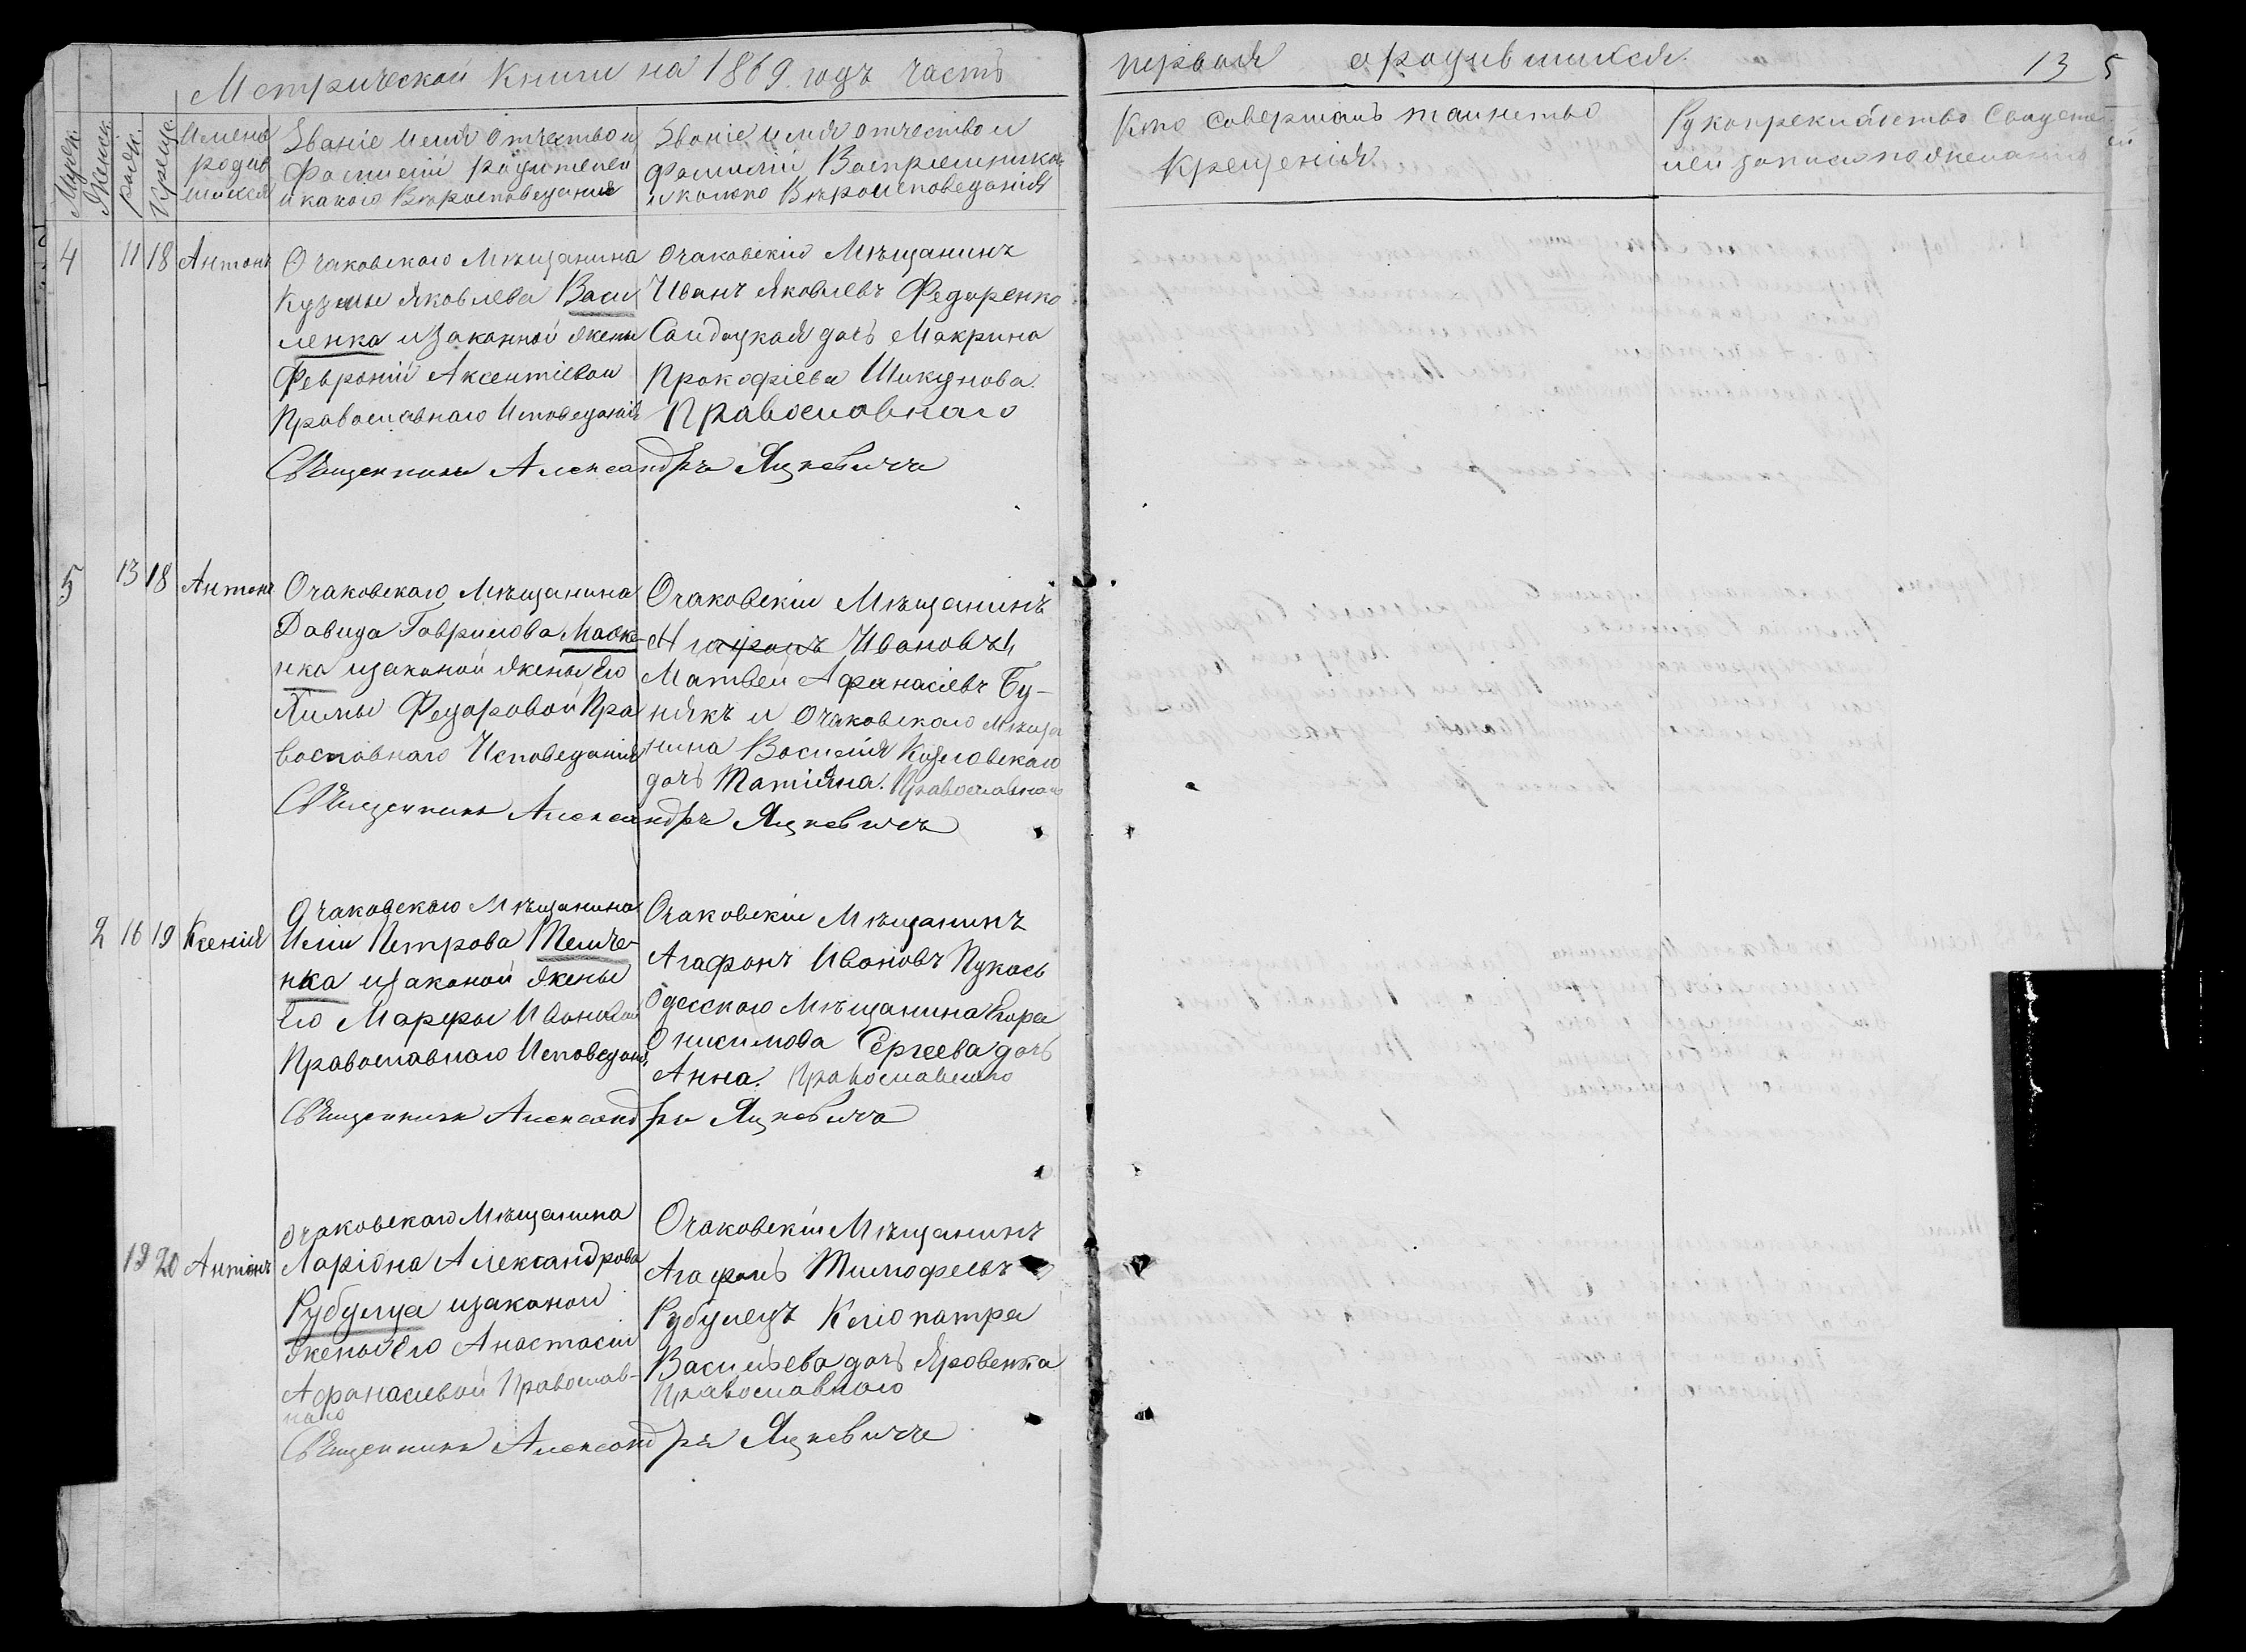 Метрической Книги на 1869. годъ часть
первая о родившихся.
13
5
Мужск.
Женск.
рожд.
Креще.
Имена родив шихся
Званіе имя отчество и
Фамилій родителей
и какого Вѣроисповеданія
Званіе имя отчество и
фамиліи Воспріемниковъ
и какого Вѣроисповеданія
Кто Совершалъ таинство
Крещенія
Рукоприкладство Свидете
лей записи по желанію
4 11 18 Антонъ
Очаковскаго Мѣщанина
Кузмы Яковлева Васи
ленка и законной жены
Февроній Аксентіевой
Православнаго Исповеданія
Очаковскій Мѣщанинъ
Иванъ Яковлевъ Федоренко
Солдацкая дочь Макрина
Прокофіева Шикунова.
Православнаго
Священникъ Александръ Яцкевичъ
5 13 18 Антонъ
Очаковскаго Мѣщанина
Давида Гаврилова
нка изаконой жены Его
Федоровой Пра
вославнаго Исповеданія
Очаковскій Мѣщанинъ
Агафонъ Ивановъ
Матвей Афанасіевъ Бу-
някъ и Очаковскаго мѣща
нина Василія Козловскаго
дочь Татіяна. Православнаго
Священникъ Александръ Яцкевичъ
2 16 19 Ксенія
Очаковскаго Мѣщанина
Иліи Петрова Темче-
нка изаконой жены
Его Марфы Ивановой
Православнаго Исповедані
Очаковскій Мѣщанинъ
Агафонъ Ивановъ Пукась
Одесскаго Мѣщанина Егора
Онисимова Сергеева дочь
Анна. Православнаго
Священникъ Александръ Яцкевичъ
19 20 Антонъ
Очаковскаго Мѣщанина
Ларіона Александрова
Рубулца изаконой
жены Его Анастасіи
Афанасіевой Православ-
наго
Очаковскій Мѣщанинъ
Агафонъ Тимофеевъ
Рубулецъ Клеопатра
Васильева дочь Яровенка
Православнаго
Священникъ Александръ Яцкевичъ